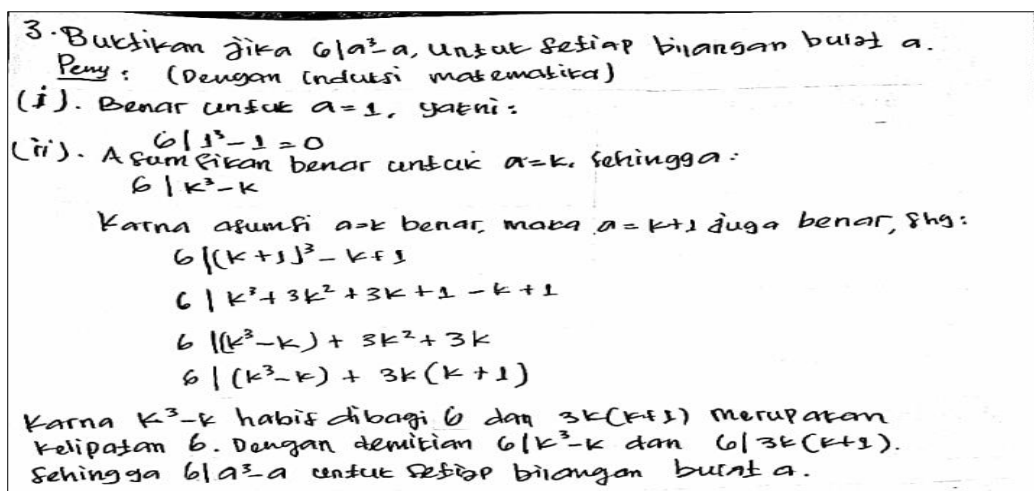 3. Buktikan jika 6|a³-a, untuk setiap bilangan bulat a.
Peny : (Dengan induksi matematika)
(i). Benar untuk a=1, yakni :
6|1³-1=0
(ii). Asumsikan benar untuk a=k, sehingga :
6 | k³-k
Karna asumsi a=k benar, maka a = k+1 juga benar, shg:
6 |(k+1)³ - k+1
6 | k³+3k²+3k+1-k+1
6 |(k³-k) + 3k²+3k
6 | (k³-k) + 3k(k+1)
Karna k³-k habis dibagi 6 dan 3k(k+1) merupakan
kelipatan 6. Dengan demikian 6|k³-k dan 6|3k(k+1).
Sehingga 6|a³-a untuk setiap bilangan bulat a.